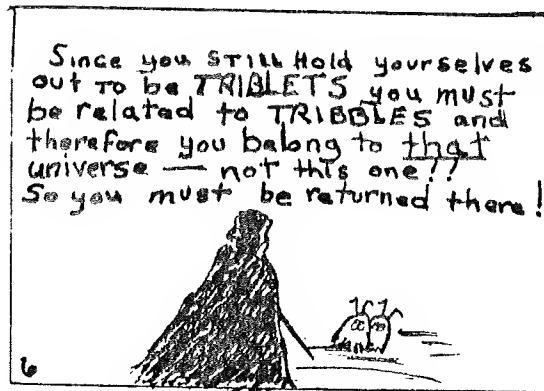 Since you STILL Hold yourselves
out TO be TRIBLETS you must
be related to TRIBBLES and
therefore you belong to that
universe — not this one!!
So you must be returned there!
6